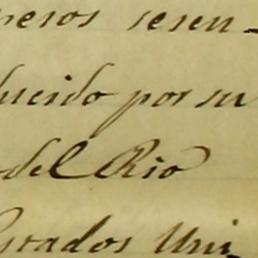 meros sesen-
ducido por su
del Rio
Estados Uni-